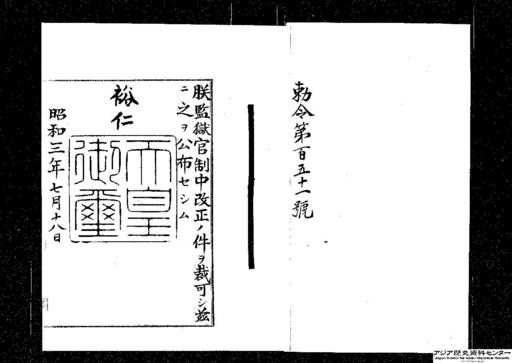 勅令第百五十一號
朕監獄官制中改正ノ件ヲ裁可シ茲
ニ之ヲ公布セシム
裕仁
天皇御璽
昭和三年七月十八日
アジア歴史資料センター
Japan Center for Asian Historical Records